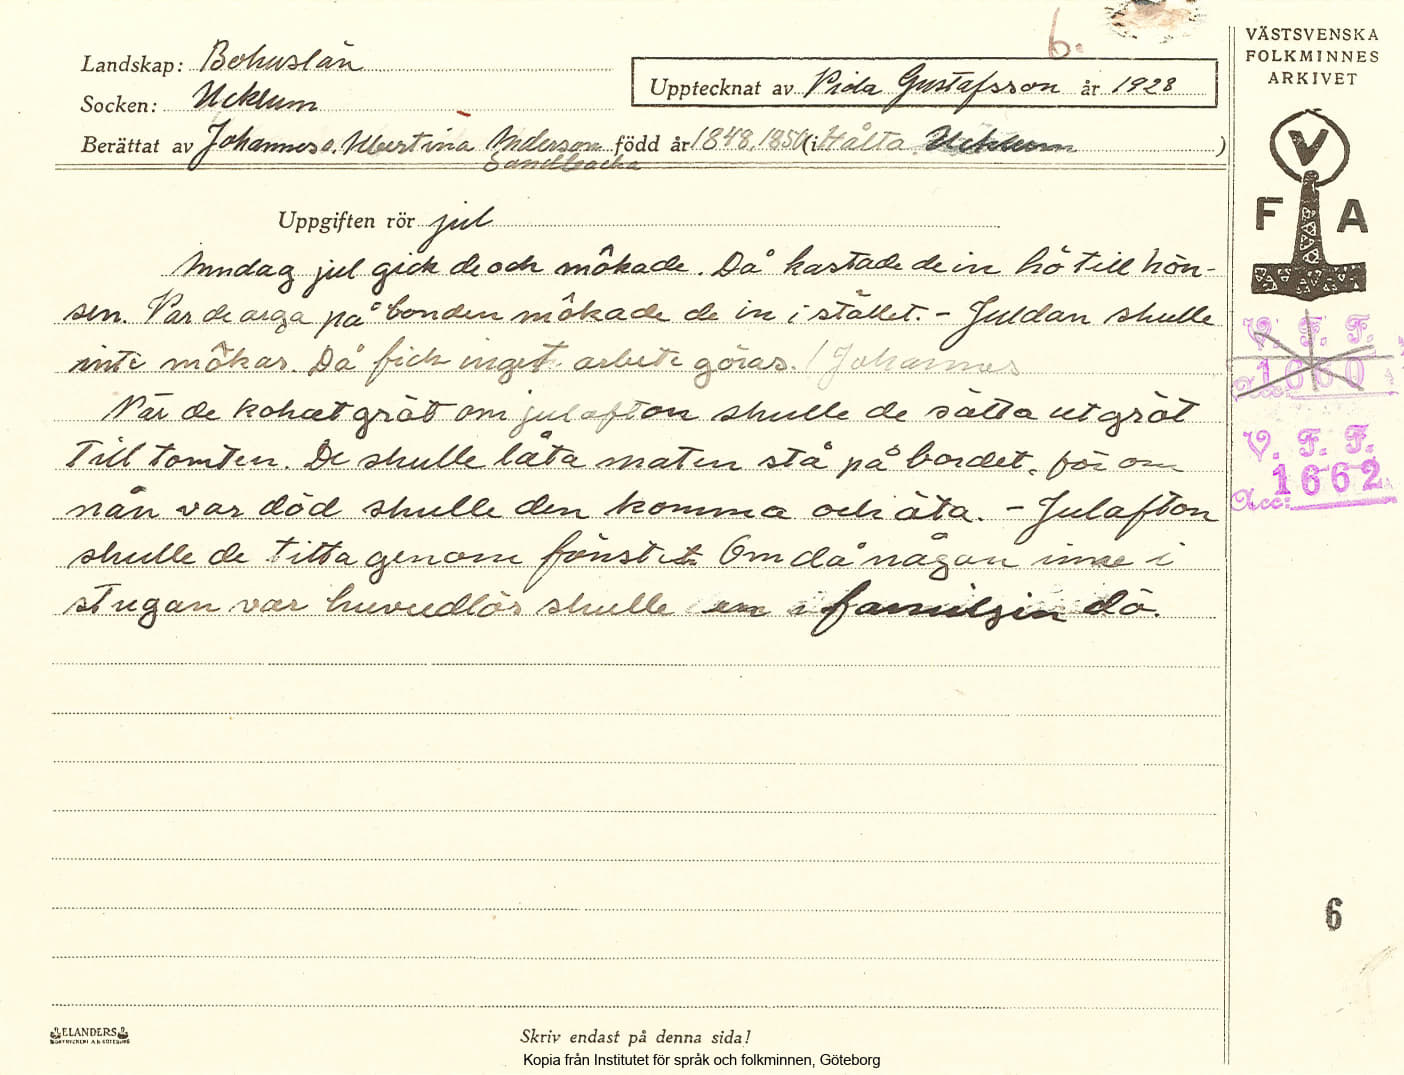 6.
VÄSTSVENSKA
FOLKMINNES
ARKIVET
Landskap: Bohuslän
Upptecknat av Vida Gustafsson år 1928
Socken: Ucklum
Berättat av Johannes o. Albertina Anderson född år 1848, 1850 (i Hålta Ucklum )
Sandbacka
V
F A
Uppgiften rör jul
Anndag jul gick de och mökade. Då kastade de in hö till hön-
sen. Var de arga på bonden mökade de in i stället. - Juldan skulle
inte mökas. Då fick inget arbete göras. / Johannes
När de kohat gröt om julafton skulle de sätta ut gröt
till tomten. De skulle låta maten stå på bordet, för om
nån var död skulle den komma och äta. - Julafton
skulle de titta genom fönstet. Om då någon inne i
stugan var huvudlös skulle en i familjen dö.
V. F. F.
Acc: 1660
V. F. F.
Acc: 1662
6
ELANDERS
Skriv endast på denna sida!
Kopia från Institutet för språk och folkminnen, Göteborg